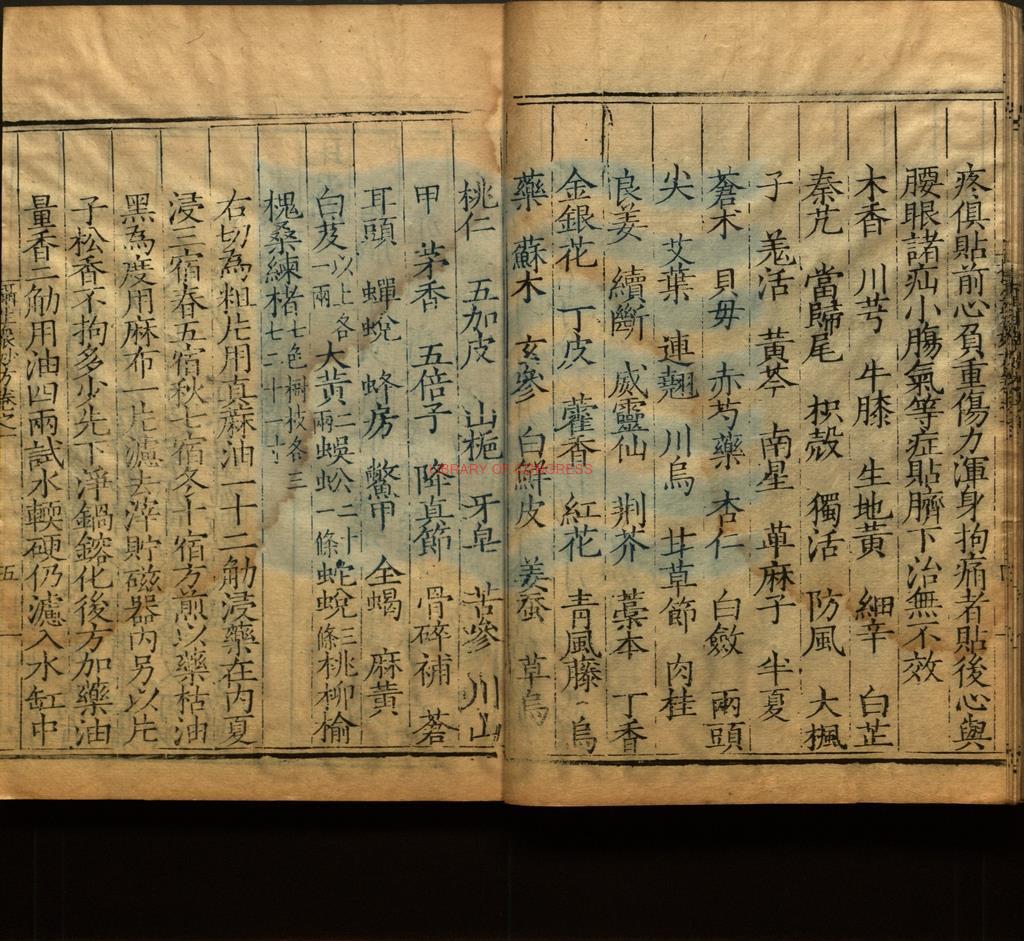 疼俱貼前心負重傷力渾身拘痛者貼後心與
腰眼諸疝小腸氣等症貼臍下治無不效
木香 川芎 牛膝 生地黃 細辛 白芷
秦艽 當歸尾 枳殼 獨活 防風 大楓
子 羗活 黃芩 南星 萆麻子 半夏
蒼朮 貝毋 赤芍藥 杏仁 白斂 兩頭
尖 艾葉 連翹 川烏 甘草節 肉桂
良姜 續斷 威靈仙 荆芥 藁本 丁香
金銀花 丁皮 藿香 紅花 青風藤 烏
藥 蘇木 玄參 白鮮皮 姜蚕 草烏
桃仁 五加皮 山梔 牙皂 苦參 川山
甲 茅香 五倍子 降真節 骨碎補 蒼
耳頭 蟬蛻 蜂房 鱉甲 全蝎 麻黃
白芨以上各一兩 大黃二兩 蜈蚣二十一條 蛇蛻三條 桃柳榆
槐桑練楮七色樹枝各三七二十一寸
右切為粗片用真蔴油一十二觔浸藥在內夏
浸三宿春五宿秋七宿冬十宿方煎以藥枯油
黑為度用麻布一片濾去滓貯磁器內另以片
子松香不拘多少先下淨鍋鎔化後方加藥油
量香二觔用油四兩試水輭硬仍濾入水缸中
五
LIBRARY OF CONGRESS